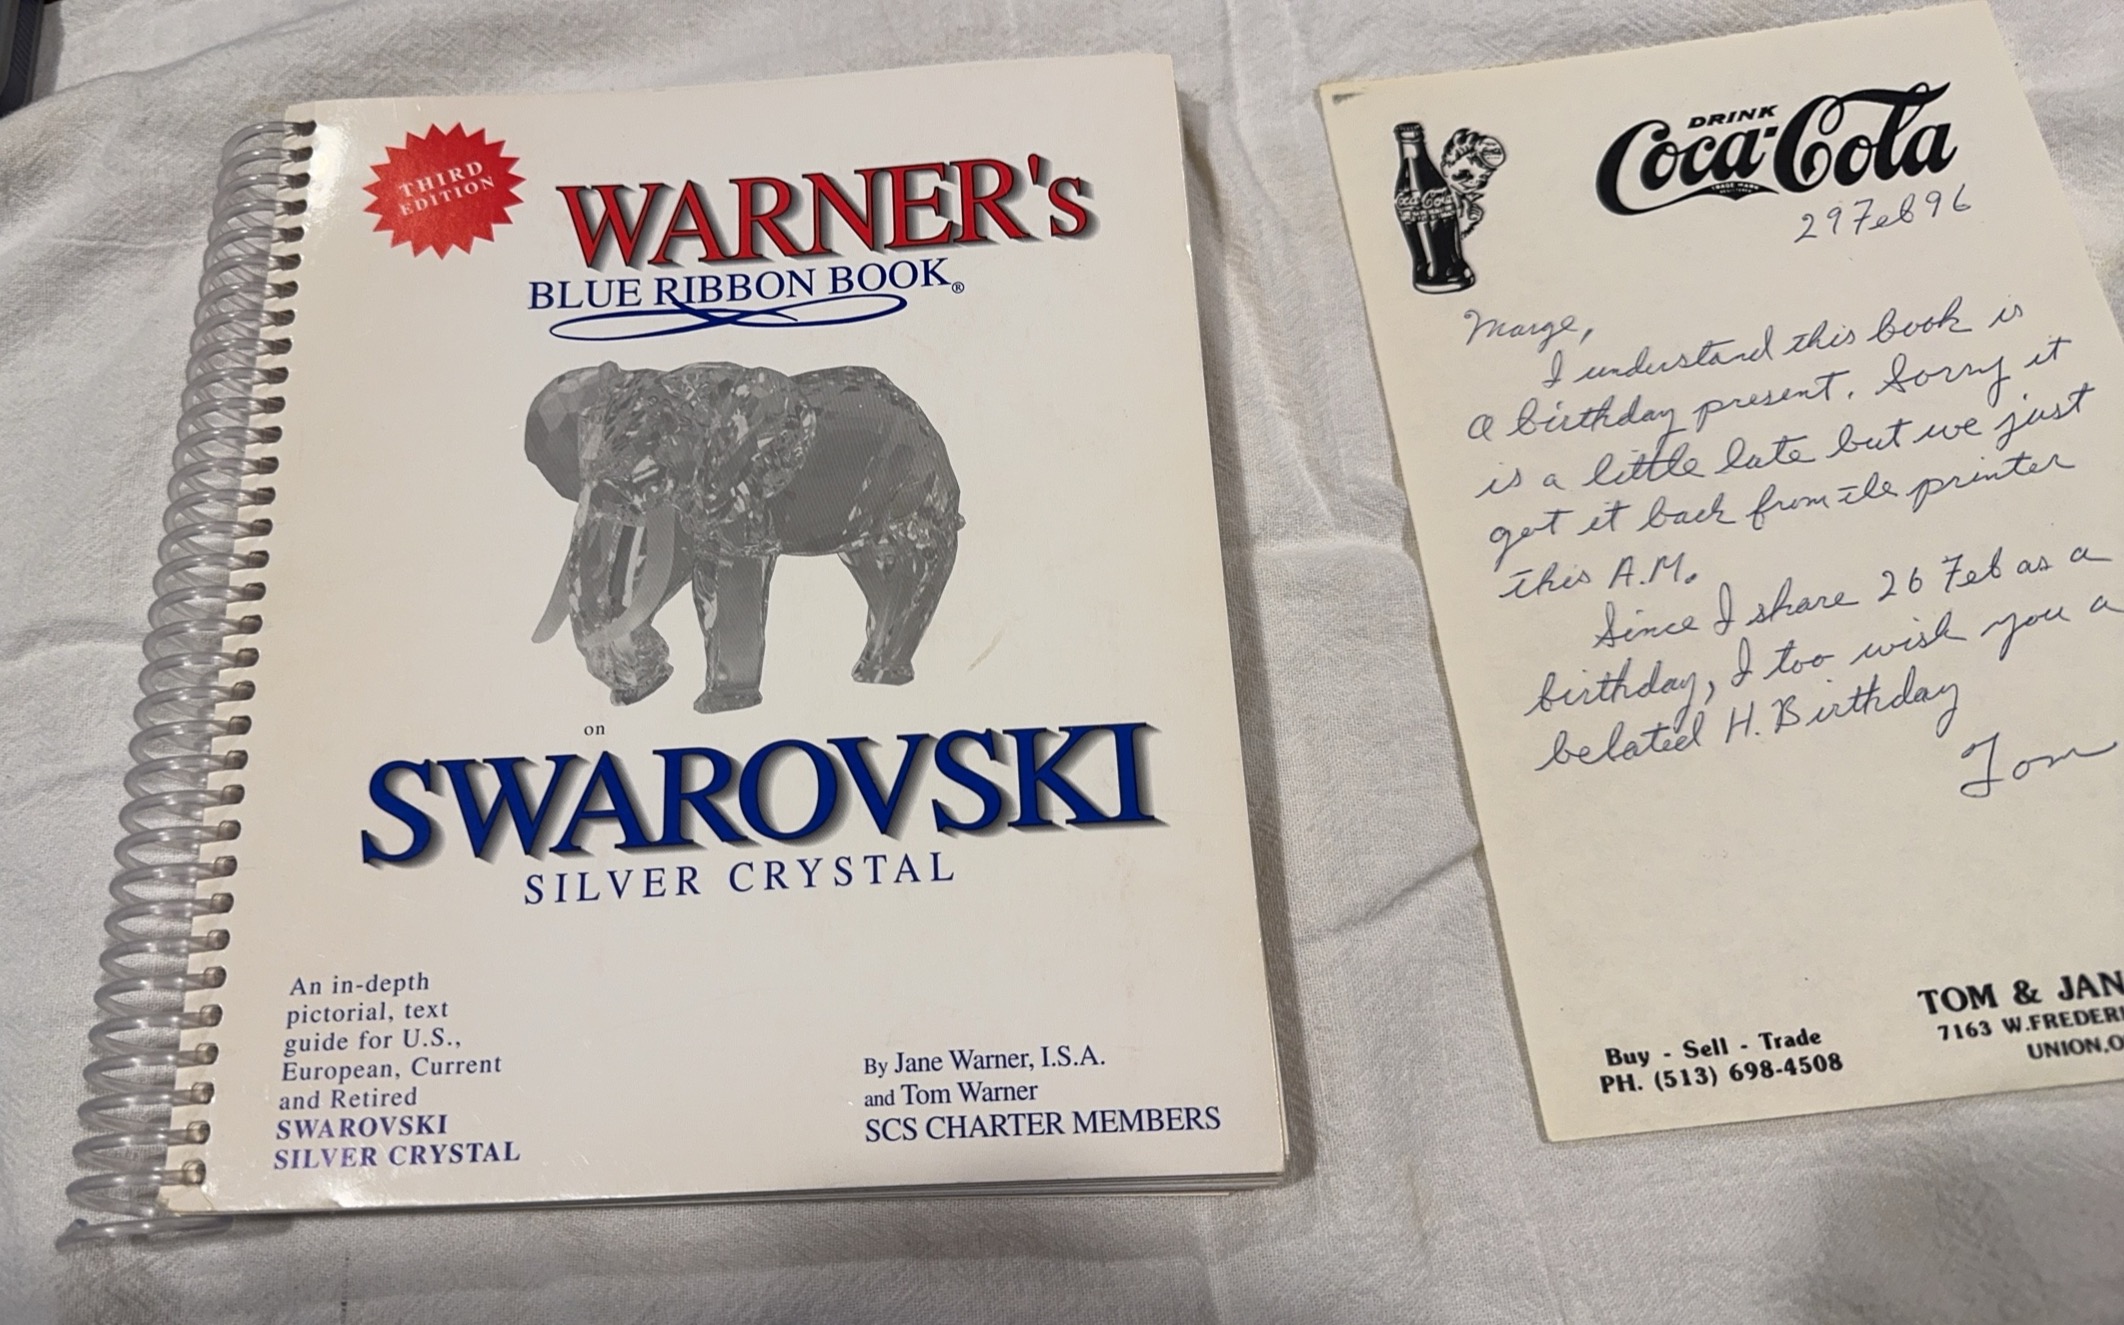 THIRD
EDITION
WARNER's
BLUE RIBBON BOOK®
on
SWAROVSKI
SILVER CRYSTAL
An in-depth
pictorial, text
guide for U.S.,
European, Current
and Retired
SWAROVSKI
SILVER CRYSTAL
By Jane Warner, I.S.A.
and Tom Warner
SCS CHARTER MEMBERS
DRINK
Coca-Cola
TRADE MARK
Coca-Cola
29 Feb 96
Marge,
I understand this book is
a birthday present. Sorry it
is a little late but we just
got it back from the printer
this A.M.
Since I share 26 Feb as a
birthday, I too wish you a
belated H. Birthday
Tom
Buy - Sell - Trade
PH. (513) 698-4508
TOM & JAN
7163 W.FREDERI
UNION,O